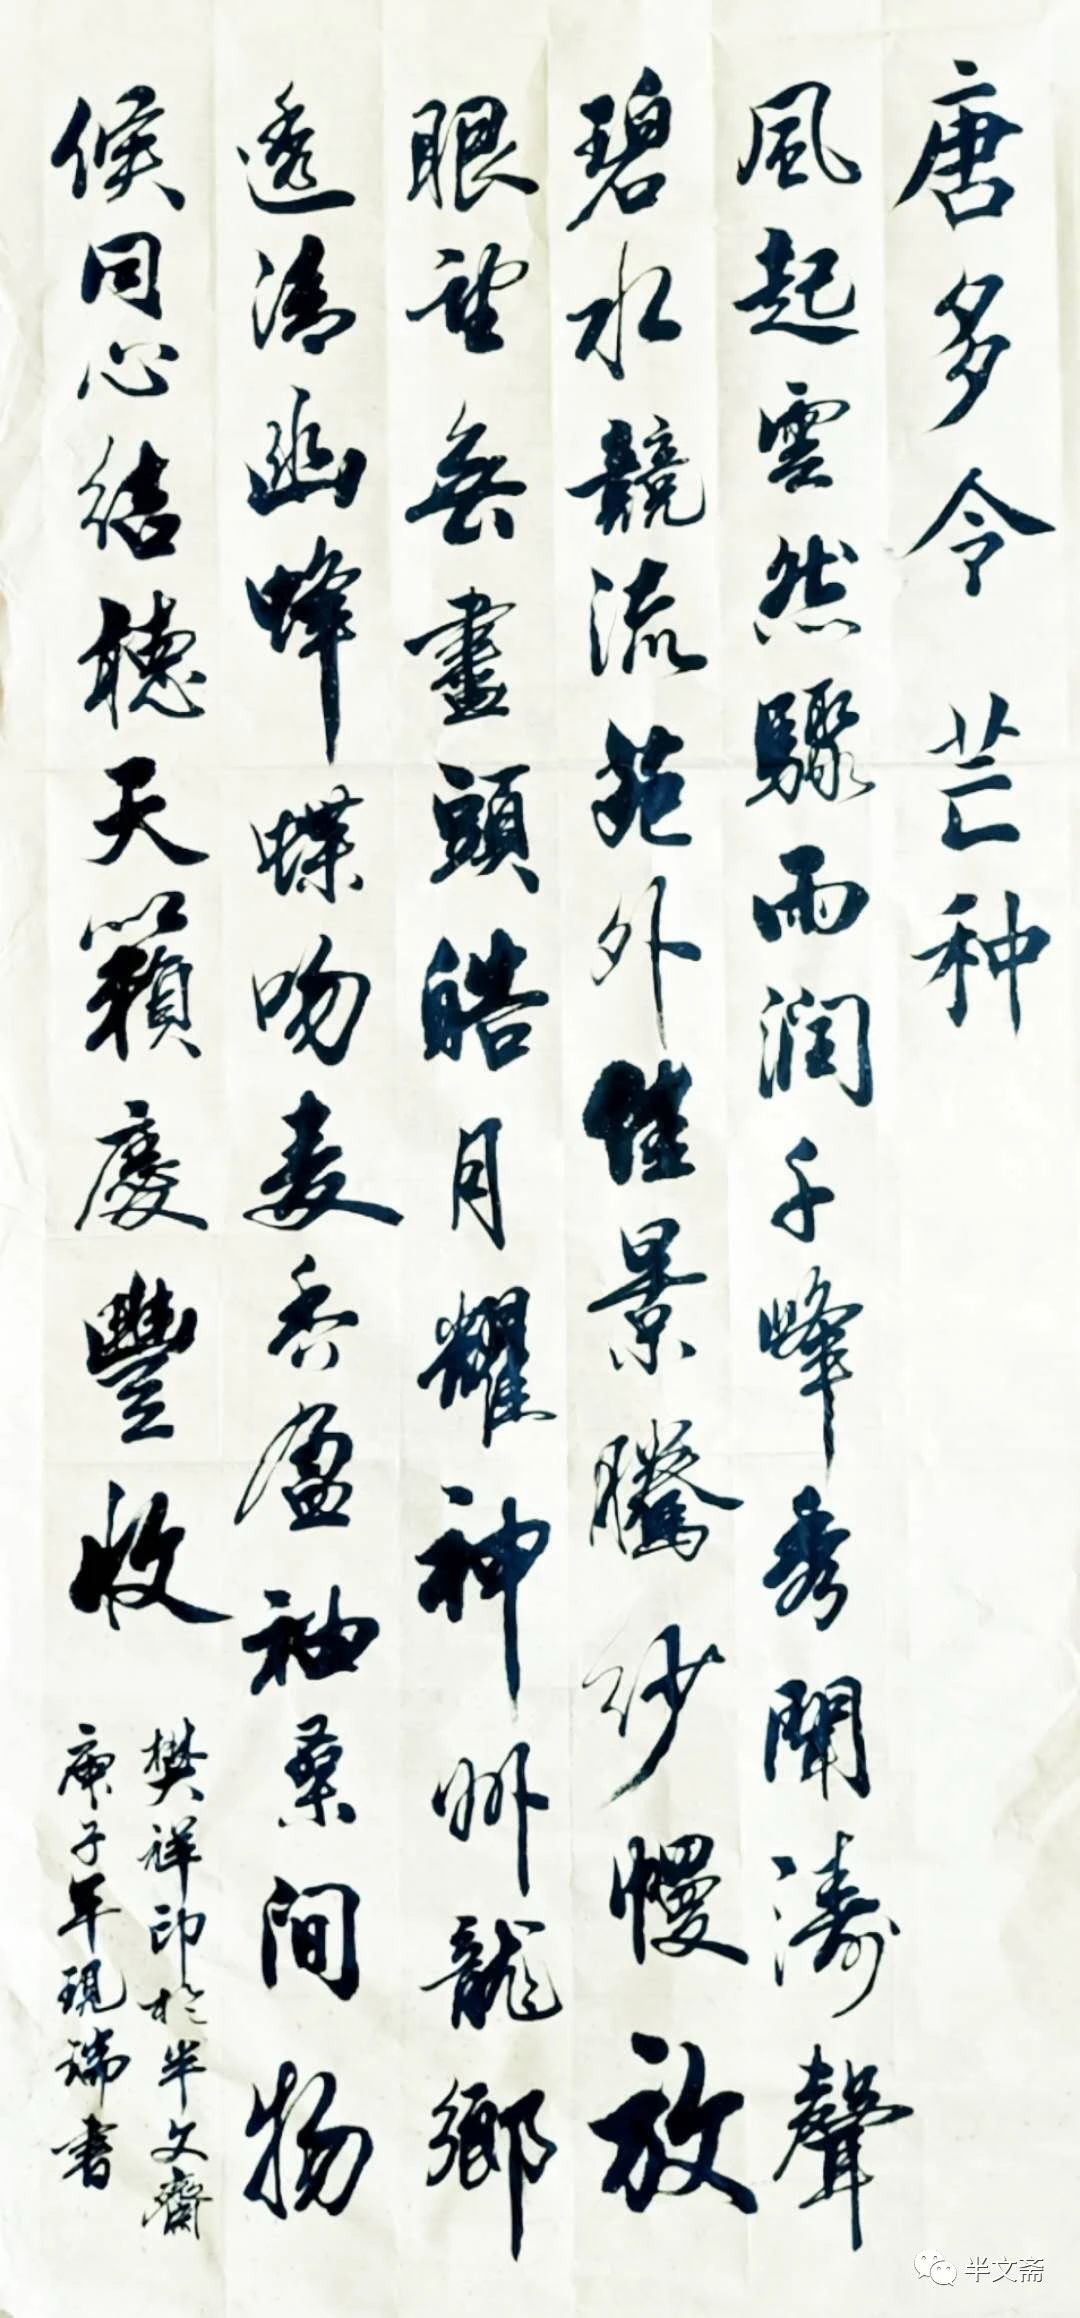 唐多令 芒种
風起雲然驟雨潤千峰秀聞濤聲
碧水競流苑外佳景騰紗幔放
眼望無盡頭皓月耀神州龍鄉
透清幽蜂蝶吻麦香盈袖桑间物
候同心結聽天籟慶豐收
樊祥印於半文齋
庚子年現瑞書
半文斋